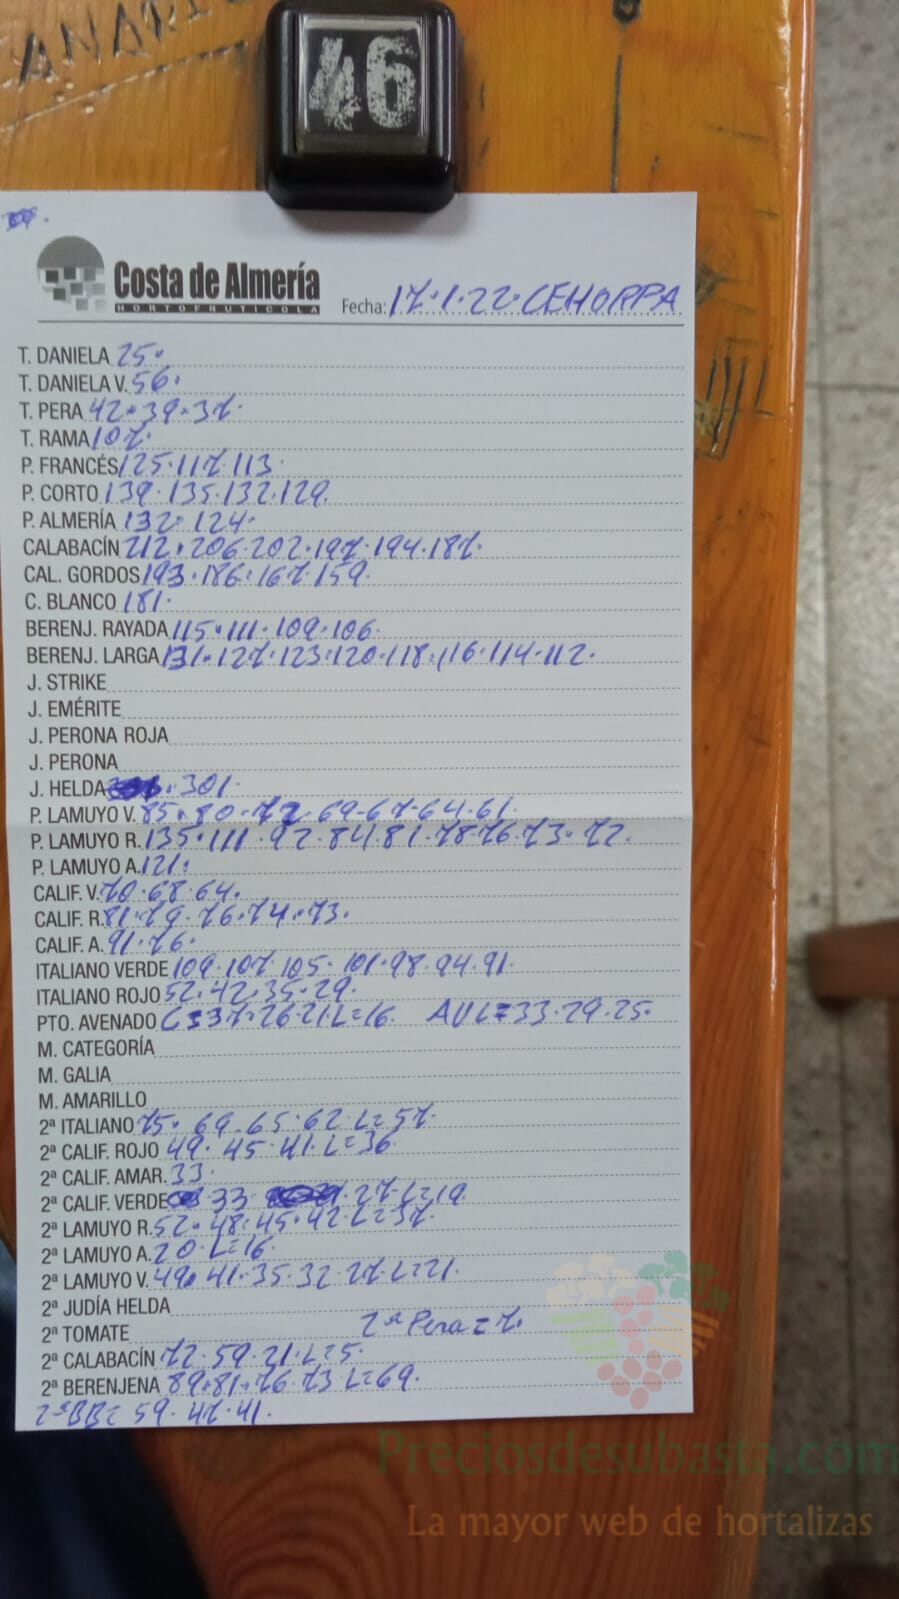 46
Costa de Almería
HORTOFRUTICOLA
Fecha: 17·1·22· CEHORPA
T. DANIELA 25·
T. DANIELA V. 56·
T. PERA 42·39·37·
T. RAMA 107·
P. FRANCÉS 125·117·113·
P. CORTO 139·135·132·129·
P. ALMERÍA 132·124·
CALABACÍN 212·206·202·197·194·187·
CAL. GORDOS 193·186·167·159·
C. BLANCO 181·
BERENJ. RAYADA 115·111·109·106·
BERENJ. LARGA 131·127·123·120·118·116·114·112·
J. STRIKE
J. EMÉRITE
J. PERONA ROJA
J. PERONA
J. HELDA 301·
P. LAMUYO V. 85·80·72·69·67·64·61·
P. LAMUYO R. 135·111·92·84·81·78·76·73·72·
P. LAMUYO A. 121·
CALIF. V. 70·68·64·
CALIF. R. 81·79·76·74·73·
CALIF. A. 91·76·
ITALIANO VERDE 109·107·105·101·98·94·91·
ITALIANO ROJO 52·42·35·29·
PTO. AVENADO C=37·26·21·L=16· AVL=33·29·25·
M. CATEGORÍA
M. GALIA
M. AMARILLO
2ª ITALIANO 75·69·65·62·L=57·
2ª CALIF. ROJO 49·45·41·L=36
2ª CALIF. AMAR. 33·
2ª CALIF. VERDE 33 27·L=19
2ª LAMUYO R. 52·48·45·42·L=37·
2ª LAMUYO A. 20·L=16·
2ª LAMUYO V. 49·41·35·32·27·L=21·
2ª JUDÍA HELDA
2ª TOMATE 2ª Pera=7·
2ª CALABACÍN 72·59·21·L=5·
2ª BERENJENA 89·81·76·73·L=69·
2ªBB= 59·47·41·
Preciosdesubasta.com
La mayor web de hortalizas